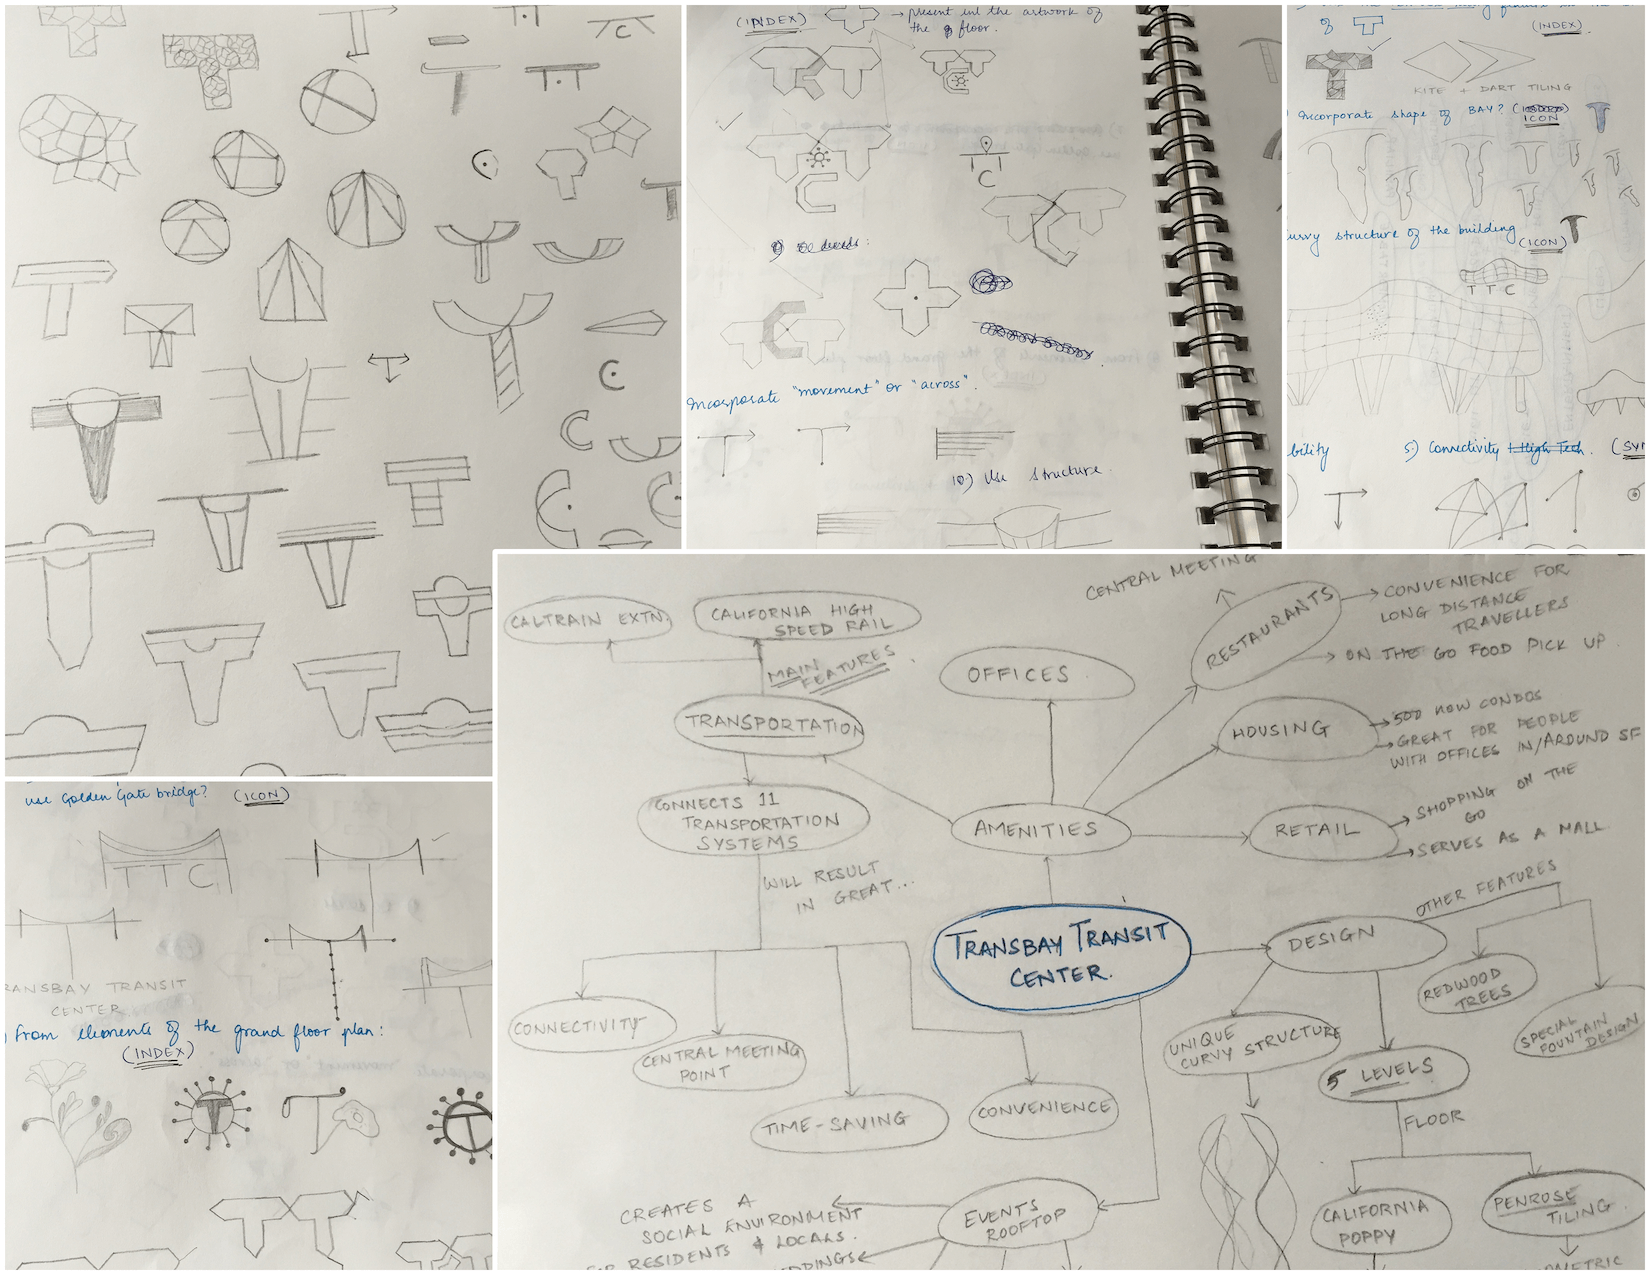 C
(INDEX)
→ present in the artwork of
the floor.
C
Incorporate "movement" or "across".
10.) Use structure.
of
(INDEX)
KITE + DART TILING
Incorporate shape of BAY? (
ICON
curvy structure of the building
(ICON)
T T C
bility
5.) Connectivity High Tech.
use Golden Gate bridge?
(ICON)
T T C
RANSBAY TRANSIT
CENTER
) From elements of the grand floor plan:
(INDEX)
CALTRAIN EXTN.
CALIFORNIA HIGH
SPEED RAIL
MAIN
FEATURES
TRANSPORTATION
CONNECTS 11
TRANSPORTATION
SYSTEMS
WILL RESULT
IN GREAT...
CONNECTIVITY
CENTRAL MEETING
POINT
TIME-SAVING
CONVENIENCE
OFFICES
CENTRAL MEETING
RESTAURANTS
CONVENIENCE FOR
LONG DISTANCE
TRAVELLERS
ON THE GO FOOD PICK UP.
HOUSING
500 NOW CONDOS
GREAT FOR PEOPLE
WITH OFFICES IN/AROUND SF
AMENITIES
RETAIL
SHOPPING ON THE
GO
SERVES AS A MALL.
TRANSBAY TRANSIT
CENTER.
DESIGN
OTHER FEATURES
REDWOOD
TREES
SPECIAL
FOUNTAIN
DESIGN
UNIQUE
CURVY STRUCTURE
5 LEVELS
FLOOR
CALIFORNIA
POPPY
PENROSE
TILING.
EVENTS
ROOFTOP
CREATES A
SOCIAL ENVIRONMENT
FOR RESIDENTS & LOCALS.
DDINGS
OMETRIC